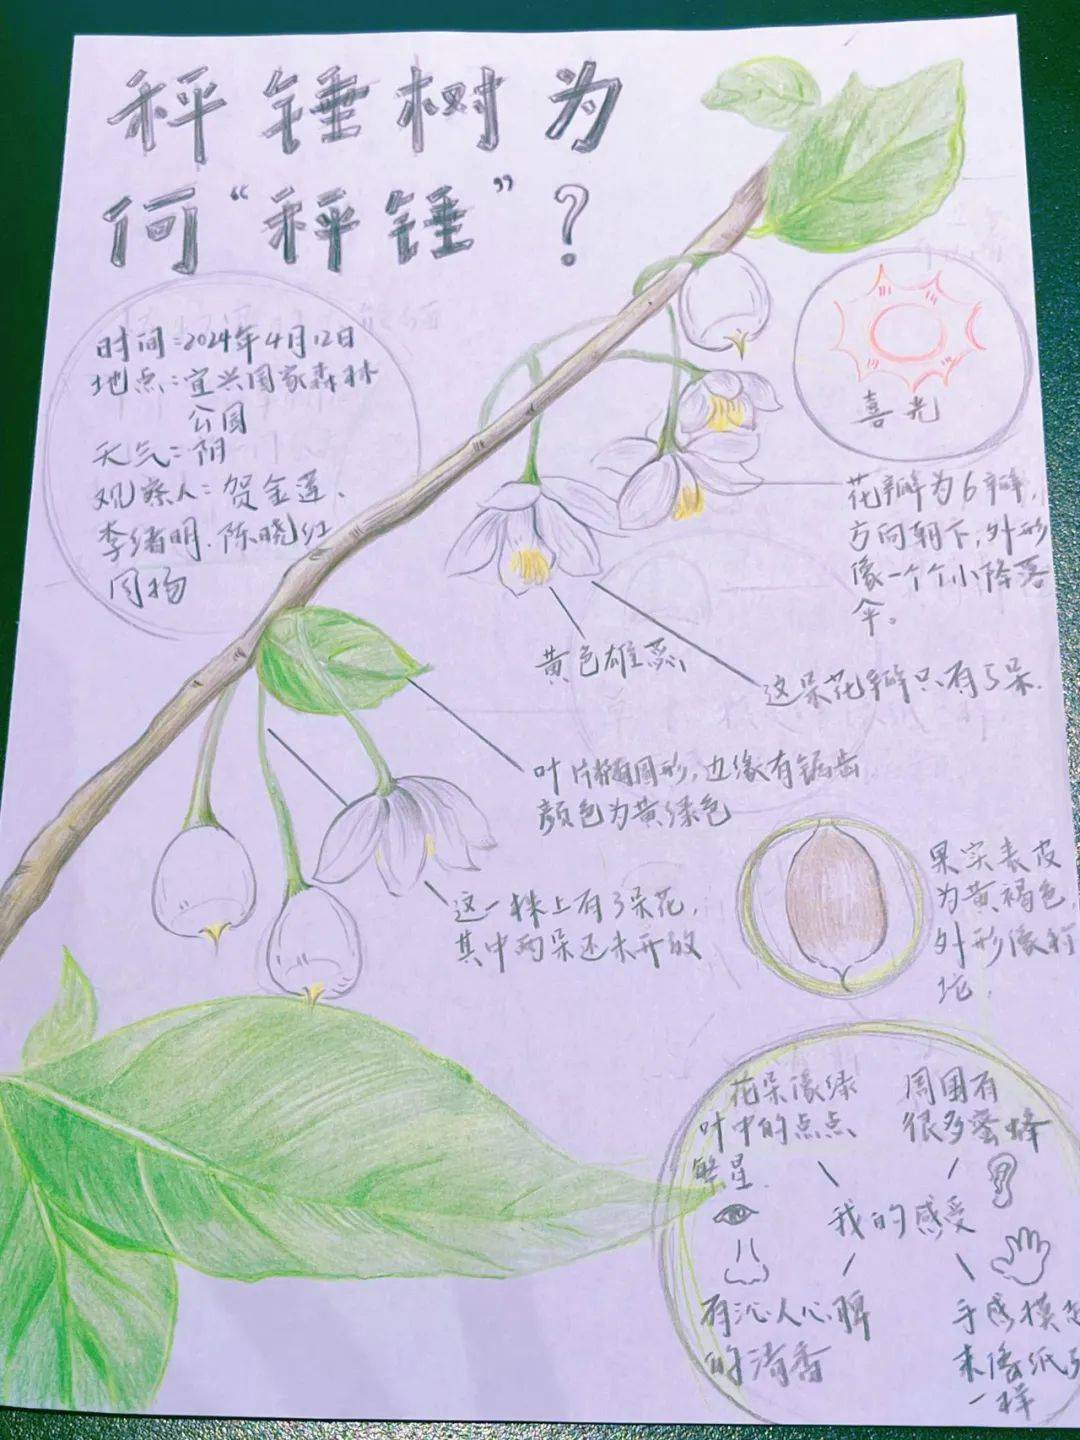 秤锤树为
何“秤锤”?
时间:2024年4月12日
地点:宜兴国家森林
公园
天气:阴
观察人:贺金莲、
李绪明、陈晓红
闵扬
喜光
花瓣为6瓣,
方向朝下,外形
像一个个小降落
伞。
黄色雄蕊
这朵花瓣只有5朵.
叶片椭圆形,边缘有锯齿
颜色为黄绿色
这一株上有3朵花,
其中两朵还未开放
果实表皮
为黄褐色,
外形像秤
砣.
花朵像绿
叶中的点点
繁星.
周围有
很多蜜蜂
我的感受
有沁人心脾
的清香
手感摸起
来像纸
一样